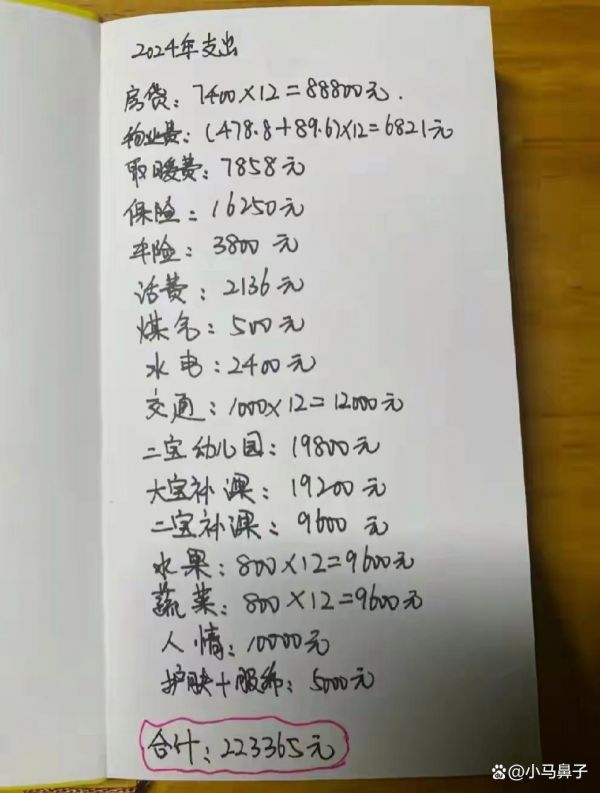 2024年支出
房贷：7400×12=88800元.
物业费：(478.8+89.6)×12=6821元
取暖费：7858元
保险：16250元
车险：3800元
话费：2136元
煤气：500元
水电：2400元
交通：1000×12=12000元
二宝幼儿园：19800元
大宝补课：19200元
二宝补课：9600元
水果：800×12=9600元
蔬菜：800×12=9600元
人情：10000元
护肤+服饰：5000元
合计：223365元
@小马鼻子